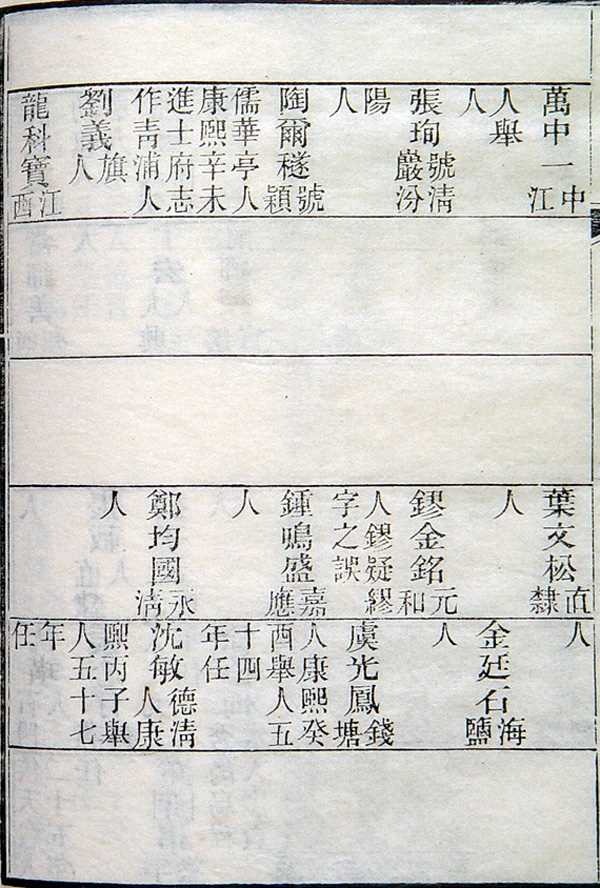 萬中一中江
人舉
人
張珣號清嚴汾
陽
人
陶爾穟號穎
儒華亭人
康熙辛未
進士府志
作青浦人
劉義旗人
龍科寶江西
葉文松直隸
人
鏐金銘元和
人鏐疑繆
字之誤
鍾鳴盛嘉應
人
鄭均國永清
人
人
金廷石海鹽
人
虞光鳳錢塘
人康熙癸
酉舉人五
十四
年任
沈敏德清人康
熙丙子舉
人五十七
年
任